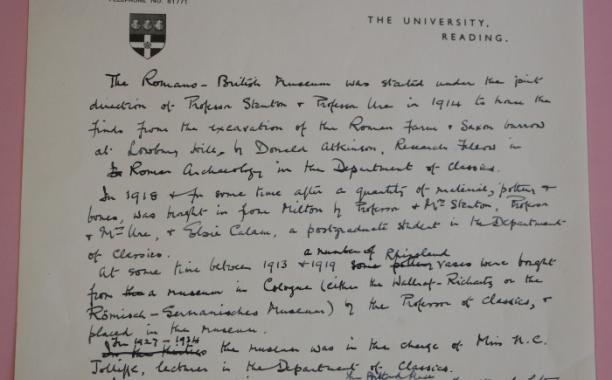 TELEPHONE NO. 81771
THE UNIVERSITY,
READING.
The Romano-British Museum was started under the joint
direction of Professor Stenton & Professor Ure in 1914 to house the
finds from the excavation of the Roman Farm & Saxon barrow
at Lowbury Hill, by Donald Atkinson, Research Fellow in
Roman Archaeology in the Department of Classics.
In 1918 & for some time after a quantity of material, pottery &
bones, was brought in from Milton by Professor & Mrs Stenton, Professor
& Mrs Ure, & Elsie Calam, a postgraduate student in the Department
of Classics.
a number of Rhineland
At some time between 1913 & 1919 some pottery vases were bought
from the a museum in Cologne (either the Wallraf-Richartz or the
Römisch-Germanisches Museum) by the Professor of Classics, &
placed in the museum.
In 1927-1934
In the thirties the museum was in the charge of Miss N.C.
Jolliffe, lecturer in the Department of Classics.